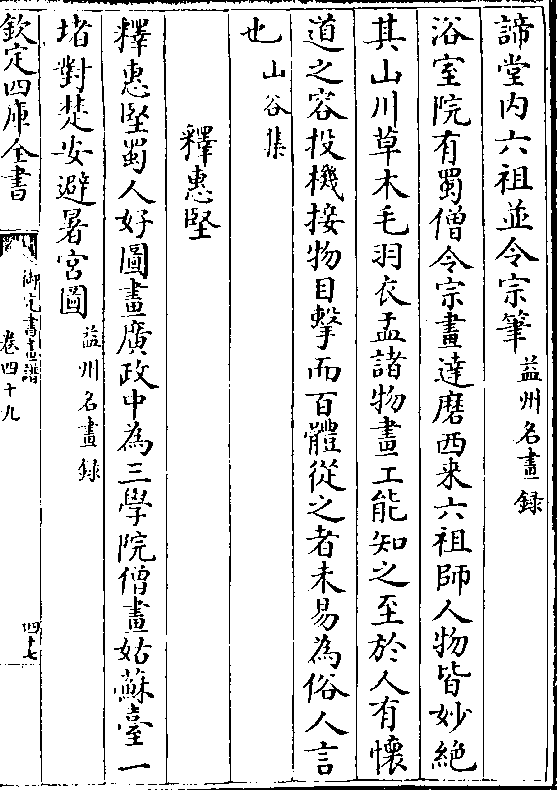 諦堂内六祖並令宗筆益州名畫録
浴室院有蜀僧令宗畫達磨西来六祖師人物皆妙絶
其山川草木毛羽衣盂諸物畫工能知之至於人有懐
道之容投機接物目擊而百體從之者未易為俗人言
也山谷集
釋惠堅
釋惠堅蜀人好圖畫廣政中為三學院僧畫姑蘇臺一
堵對楚安避暑宫圖益州名畫録
欽定四庫全書
御定書畫譜
卷四十九
四十七